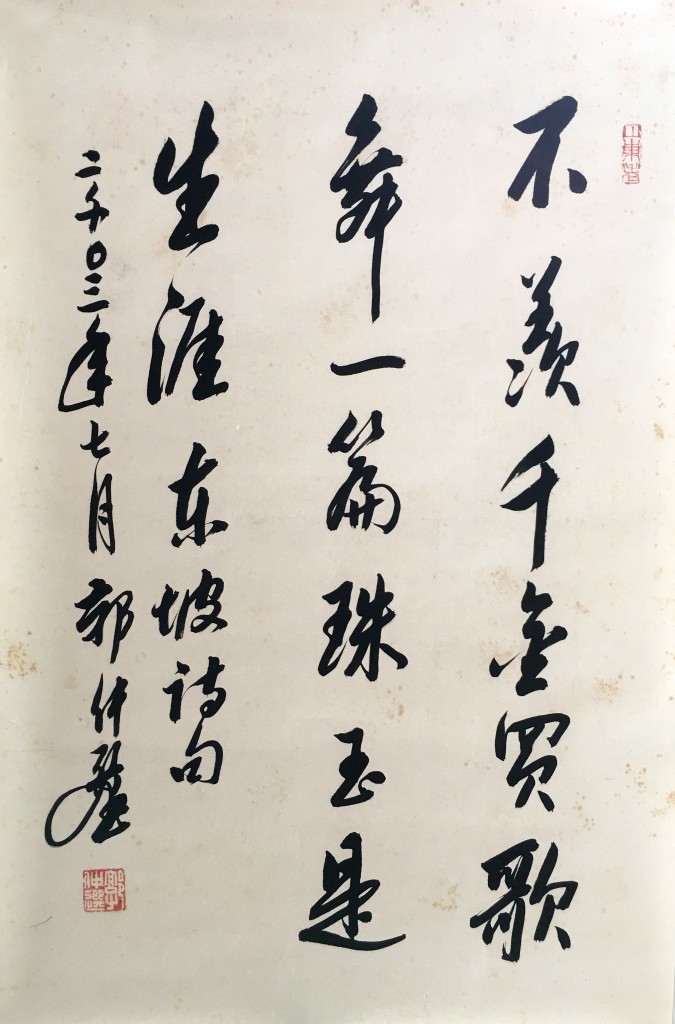 不羡千金買歌
舞一篇珠玉是
生涯东坡诗句
二千〇三年七月郭仲選
郭仲選